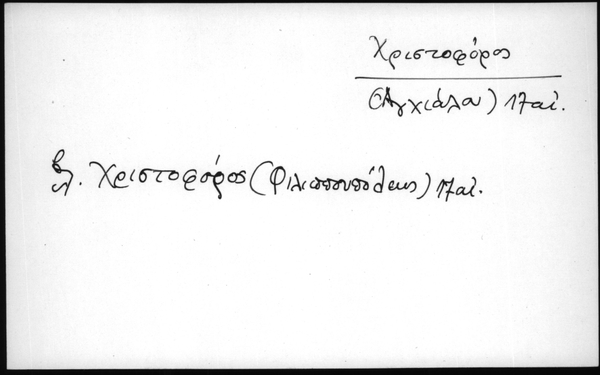 Χριστοφόρος
(Ἀγχιάλου) 17 αἰ.
βλ. Χριστοφόρος (Φιλιππουπόλεως) 17 αἰ.